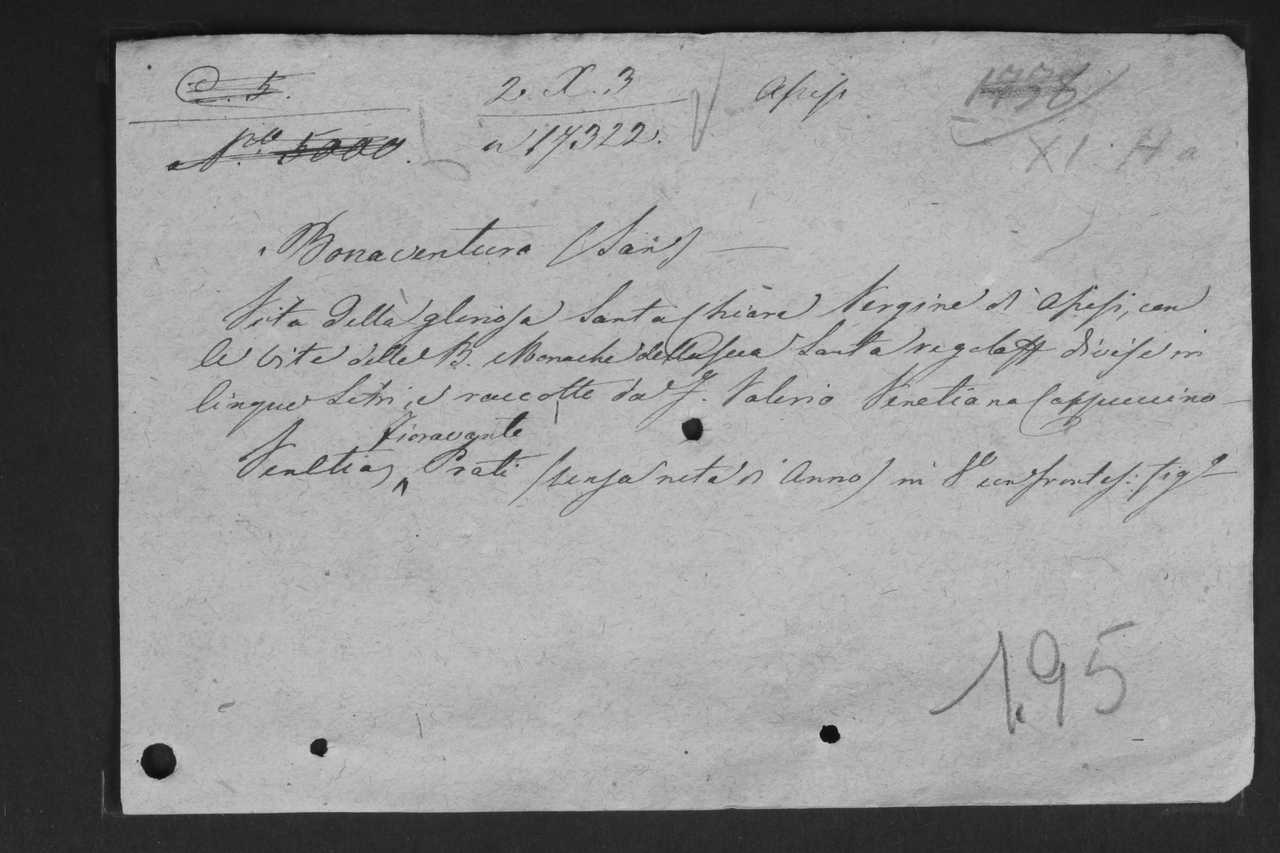 C. 5. 2. X. 3 Assisi 1738
N.ro 5000. n 17322. XI. H a
Bonaventura (San)
Vita della gloriosa Santa Chiara Vergine di Assisi, con
le vite delle B. Monache della sua Santa regola divise in
cinque Libri, e raccolte da F. Valerio Venetiano Cappuccino
Fioravante
Venetia, Prati (senza nota di Anno) in 8° con frontes: fig.
195